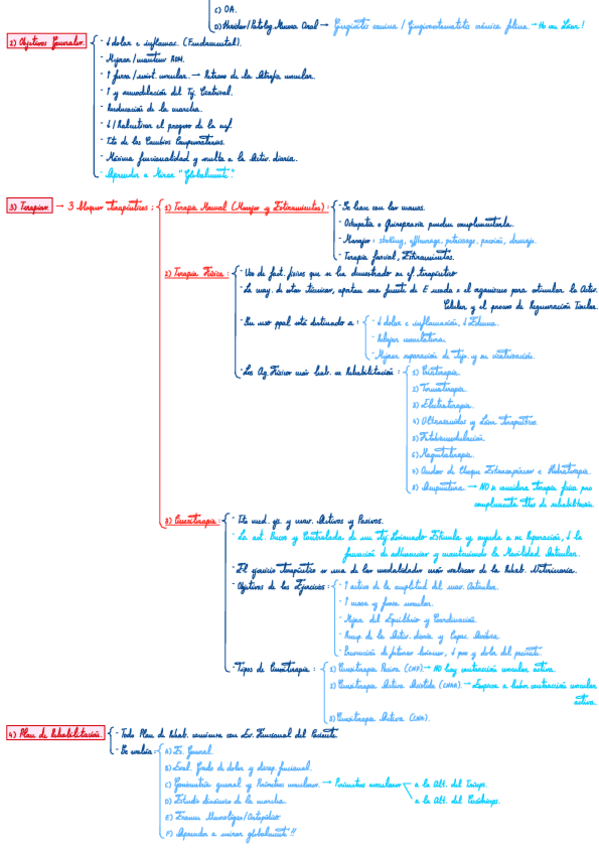 c) OA.
D) Heridas/Patolog. Mucosa Oral → Gingivitis crónica / Gingivoestomatitis crónica felina → Se usa Láser!
2) Objetivos Generales
- ↓ dolor e inflamac. (Fundamental).
- Mejorar/mantener ROM.
- ↑ fuerza/resist. muscular. → Retraso de la Atrofia muscular.
- ↑ y remodelación del Tj. Conectival.
- Reeducación de la marcha.
- ↓/Ralentizar el progreso de la enf.
- Tto de los Cambios Compensatorios.
- Máxima funcionalidad y vuelta a la Activ. diaria.
- Aprender a Mirar "Globalmente".
3) Terapias → 3 bloques Terapéuticos:
1) Terapia Manual (Masajes y Estiramientos):
- Se hace con las manos.
- Osteopatía o Quiropraxia pueden complementarla.
- Masajes: stroking, effleurage, petrissage, presión, drenaje.
- Terapia fascial, Estiramientos.
2) Terapia Física:
- Uso de fact. físicos que se ha demostrado su ef. terapéutico
- La may. de estas técnicas, aportan una fuente de E usada x el organismo para estimular la Activ. Celular y el proceso de Regeneración Tisular.
- Su uso ppal está destinado a:
- ↓ dolor e inflamación, ↓ Edema.
- Relajar musculatura.
- Mejorar reparación de Tejs. y su cicatrización.
- Los Ag. Físicos más hab. en Rehabilitación:
1) Crioterapia.
2) Termoterapia.
3) Electroterapia.
4) Ultrasonidos y Láser Terapéutico.
5) Fotobiomodulación.
6) Magnetoterapia.
7) Ondas de Choque Extracorpóreas e Hidroterapia.
8) Acupuntura. → NO se considera Terapia física pero complementa ttos de rehabilitación.
3) Cinesiterapia:
- Tto med. ejs. y movs. Activos y Pasivos.
- La act. Precoz y Controlada de un Tj Lesionado Estimula y ayuda a su Reparación, ↓ la formación de adherencias y manteniendo la Movilidad Articular.
- El ejercicio Terapéutico es una de las modalidades más valiosas de la Rehab. Veterinaria.
- Objetivos de los Ejercicios:
- ↑ activo de la amplitud del mov. Articular.
- ↑ masa y fuerza muscular.
- Mejora del Equilibrio y Coordinación.
- Recup. de la Activ. diaria y Capac. Aeróbica.
- Prevención de futuras lesiones, ↓ peso y dolor del paciente
- Tipos de Cinesiterapia:
1) Cinesiterapia Pasiva (CNP). → NO hay contracción muscular activa.
2) Cinesiterapia Activa Asistida (CNAA). → Empieza a haber contracción muscular activa.
3) Cinesiterapia Activa (CNA).
4) Plan de Rehabilitación
- Todo Plan de Rehab. comienza con Ev. Funcional del Paciente.
- Se evalúa:
A) Ex. General.
B) Eval. Grado de dolor y discap. funcional.
C) Goniometría general y Perímetros musculares. → Perímetros musculares
a la Alt. del Tríceps.
a la Alt. del Cuádriceps.
D) Estudio dinámico de la marcha.
E) Examen Neurológico/Ortopédico
F) Aprender a mirar globalmente!!